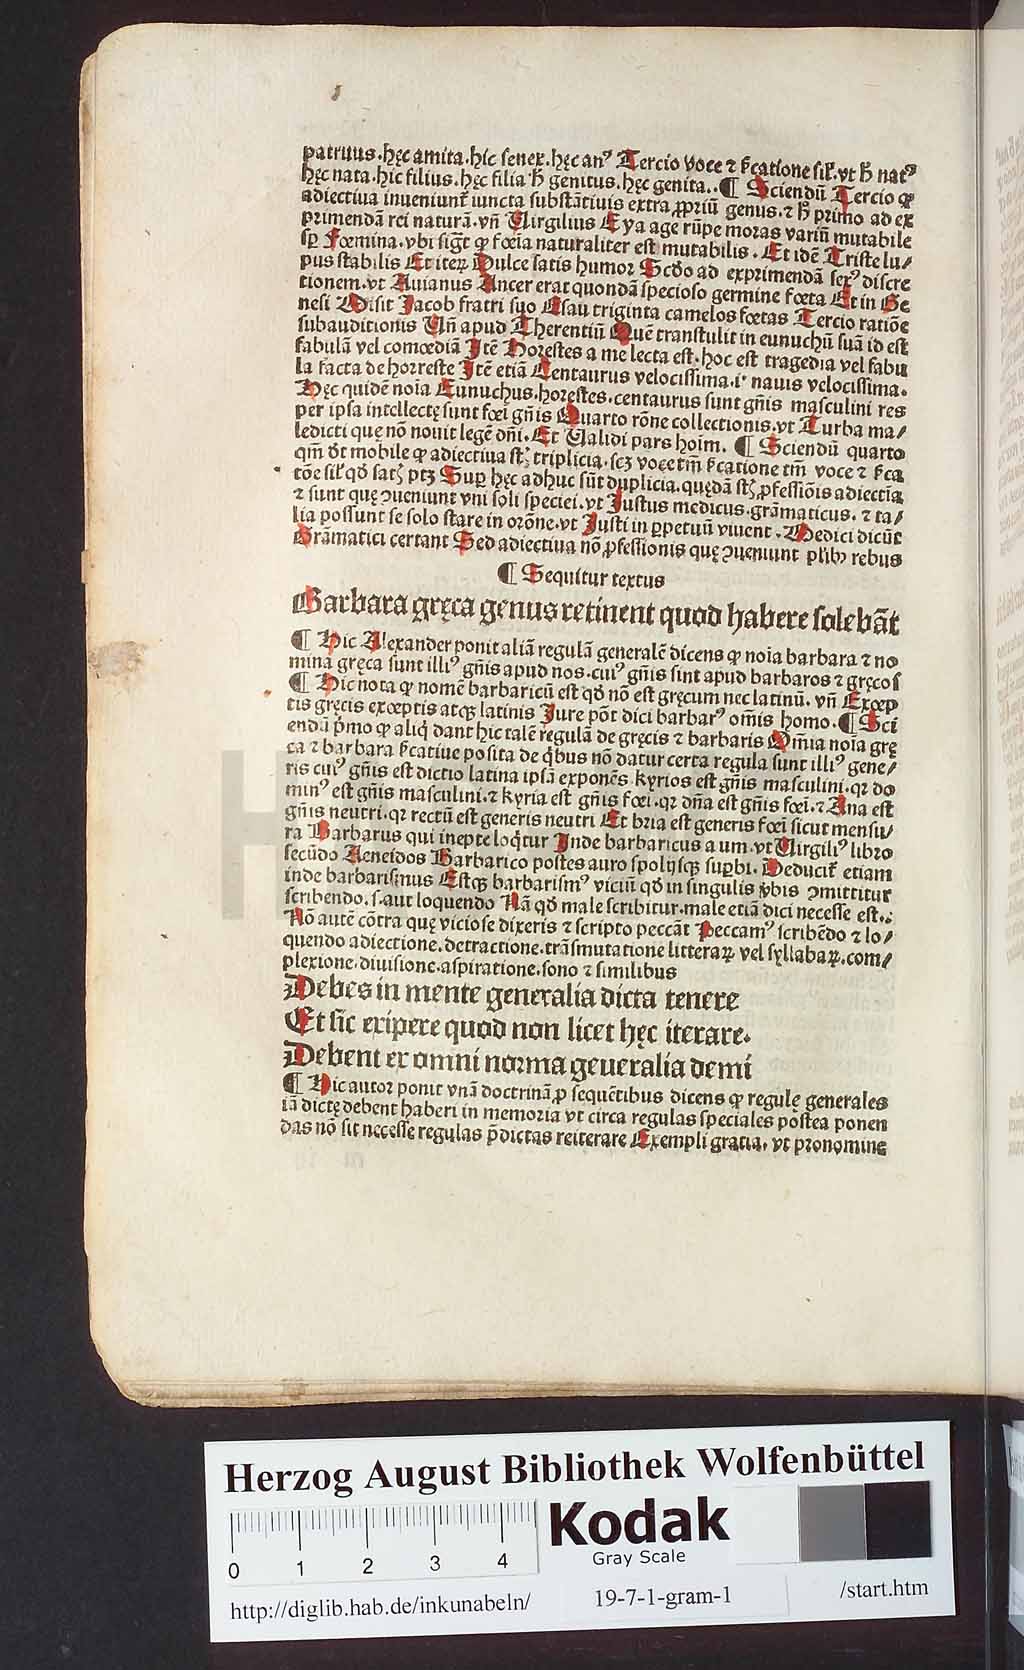 patruus.hęc amita.hic senex.hęc anꝰ Tercio voce ⁊ ſ̄catione siľ.vt ħ natꝰ
hęc nata.hic filius.hęc filia ħ genitus.hęc genita.. ¶ Sciendū Tercio ꝙ
adiectiua inueniunt̄ iuncta substātiuis extra ꝓpriū genus.⁊ ħ primo ad ex
primendā rei naturā.vn̄ Virgilius Eya age rūpe moras variū mutabile
sꝑ Fœmina.vbi sigt̄ ꝙ fœīa naturaliter est mutabilis. Et idē Triste lu/
pus stabilis Et iteꝝ Dulce satis humor Scd̄o ad exprimendā sexꝰ discre
tionem.vt Auianus Ancer erat quondā specioso germine fœta Et in Ge
nesi Misit Jacob fratri suo Esau triginta camelos fœtas Tercio ratiōe
subauditionis Vn̄ apud Therentiū Quē transtulit in eunuchū suā id est
fabulā vel comœdiā Itē Horestes a me lecta est.hoc est tragedia vel fabu
la facta de horreste Itē etiā Centaurus velocissima.i° nauis velocissima.
Hęc quidē noīa Eunuchus.horestes.centaurus sunt gn̄is masculini res
per ipsa intellectę sunt fœī gn̄is Quarto rōne collectionis.vt Turba ma/
ledicti quę nō nouit legē dn̄i. Et Validi pars hoīm. ¶ Sciendū quarto
qm̄ dt̄ mobile ꝙ adiectiua st̄ triplicia.scꝫ voce tm̄ ſ̄catione tm̄ voce ⁊ ſ̄ca
tōe siľ qd̄ satꝭ ptꝫ Suꝑ hęc adhuc sūt duplicia.quędā st̄ ꝓfessiōis adiectīa
⁊ sunt quę ꝯueniunt vni soli speciei.vt Justus medicus.grāmaticus.⁊ ta/
lia possunt se solo stare in orōne.vt Justi in ꝑpetuū viuent. Medici dicūt
Grāmatici certant Sed adiectiua nō ꝓfessionis quę ꝯueniunt pľibꝫ rebus
¶ Sequitur textus
Barbara gręca genus retinent quod habere solebāt
¶ Hic Alexander ponit aliā regulā generalē dicens ꝙ noīa barbara ⁊ no
mina gręca sunt illiꝰ gn̄is apud nos.cuiꝰ gn̄is sint apud barbaros ⁊ gręcos
¶ Hic nota ꝙ nomē barbaricū est qd̄ nō est gręcum nec latinū. vn̄ Exœp
tis gręcis exœptis atqꝫ latinis Jure pōt dici barbarꝰ om̄is homo. ¶ Sci
endū p̄mo ꝙ aliq̇ dant hic talē regulā de gręcis ⁊ barbaris Om̄ia noīa grę
ca ⁊ barbara ſ̄catiue posita de q̇bus nō datur certa regula sunt illiꝰ gene/
ris cuiꝰ gn̄is est dictio latina ipsā exponēs kyrios est gn̄is masculini.qꝛ do
minꝰ est gn̄is masculini.⁊ kyria est gn̄is fœī.qꝛ dn̄a est gn̄is fœī.⁊ Ana est
gn̄is neutri.qꝛ rectū est generis neutri Et bria est generis fœī sicut mensu/
ra Barbarus qui inepte loq̇tur Inde barbaricus a um.vt Virgiliꝰ libro
secūdo Aeneidos Barbarico postes auro spolijsqꝫ suꝑbi. Deducit̄ etiam
inde barbarismus Estqꝫ barbarismꝰ viciū qd̄ in singulis v̄bis ꝯmittitur
scribendo.s.aut loquendo Nā qd̄ male scribitur.male etiā dici necesse est.:
Nō autē cōtra quę viciose dixeris ⁊ scripto peccāt Peccamꝰ scribēdo ⁊ lo/
quendo adiectione.detractione.trāsmutatione litteraꝝ vel syllabaꝝ.com/
plexione.diuisione.aspiratione.sono ⁊ similibus
Debes in mente generalia dicta tenere
Et sic exipere quod non licet hęc iterare.
Debent ex omni norma geueralia demi
¶ Hic autor ponit vnā doctrinā ꝓ sequētibus dicens ꝙ regulę generales
iā dictę debent haberi in memoria vt circa regulas speciales postea ponen
das nō sit necesse regulas p̄dictas reiterare Exempli gratia. vt pronomine
Herzog August Bibliothek Wolfenbüttel
0 1 2 3 4
Kodak
Gray Scale
http://diglib.hab.de/inkunabeln/ 19-7-1-gram-1 /start.htm